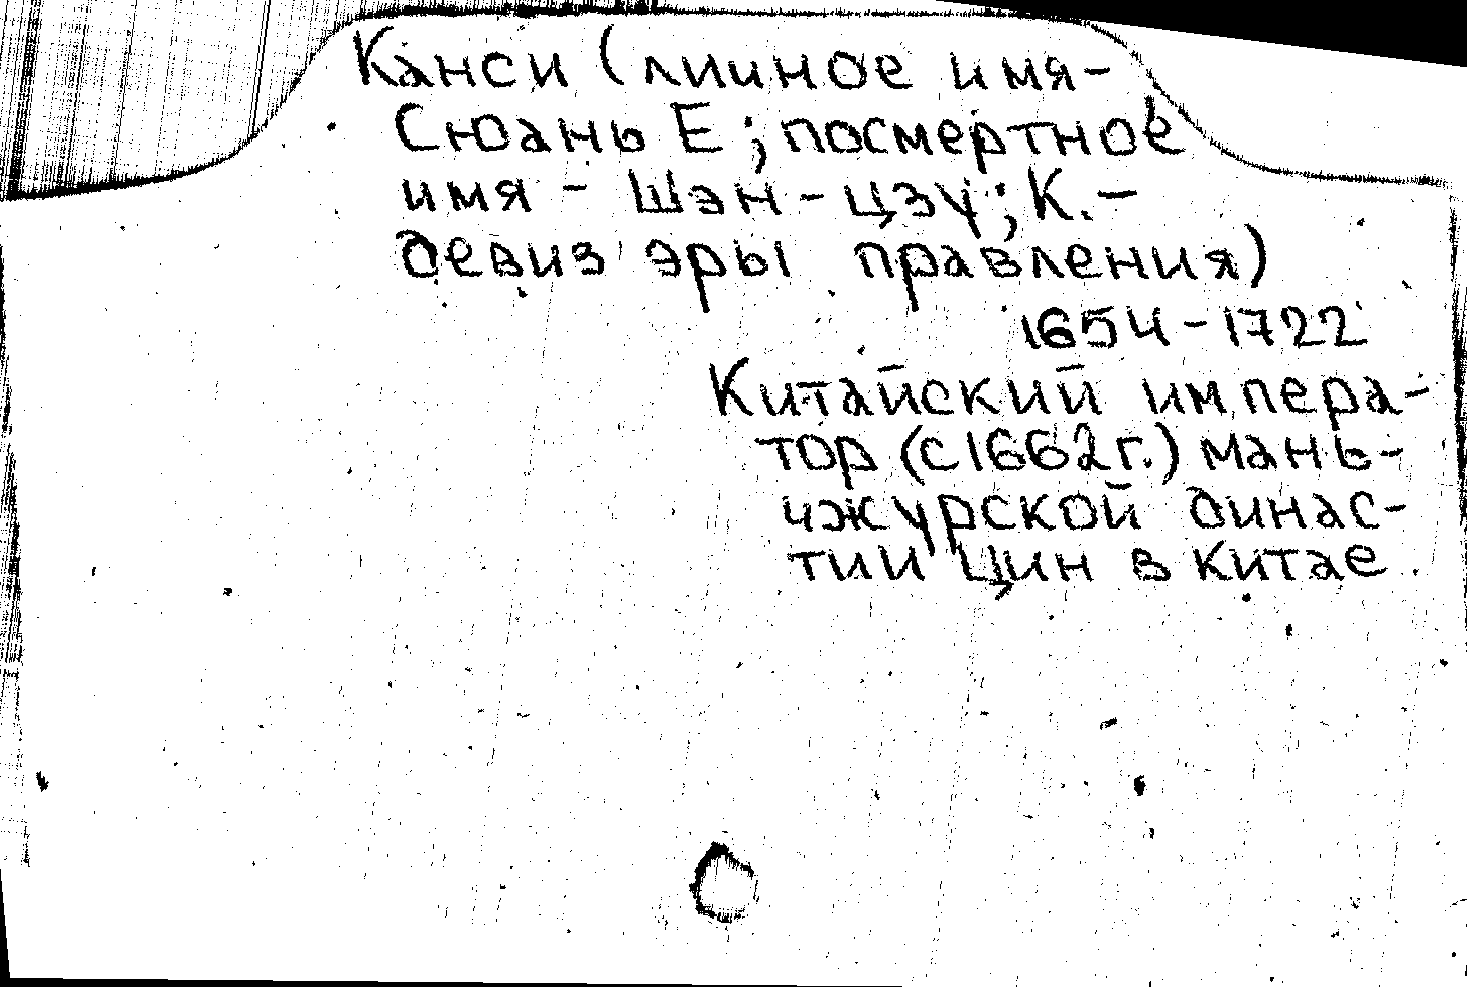 Канси (личное имя-
Сюань Е; посмертное
имя - Шэн-цзу; К. -
девиз эры правления)
1654-1722
Китайский импера-
тор (с 1662 г.) мань-
чжурской динас-
тии Цин в Китае.